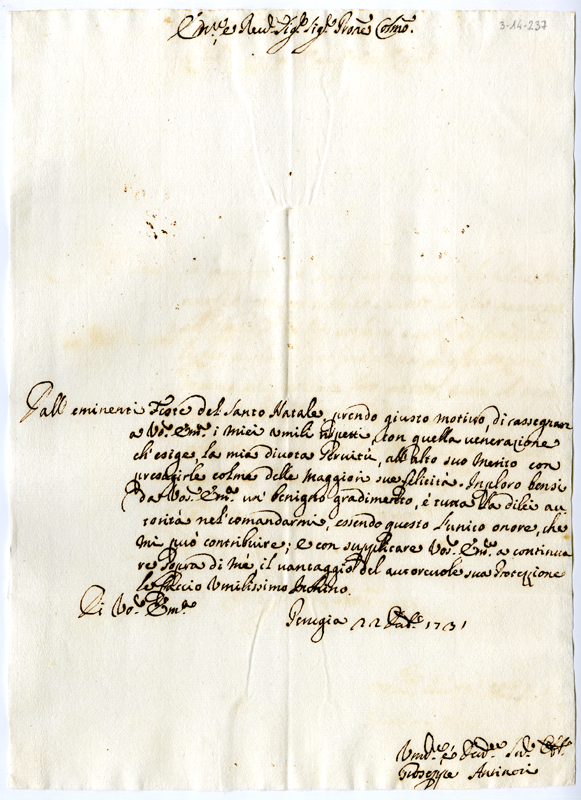 3-14-237
Em.e e Rev.e Sig.e Sig.e Prone Colmo.
Dall' eminenti Feste del Santo Natale, prendo giusto motivo, di rassegnare
a Vo.a Em.a i miei umili rispetti, con quella venerazione
ch'esige, la mia divota Servitù, all'alto suo Merito con
presagirle colme delle maggiori sue felicità. Inploro bensi
da Vo.a Em.a un benigno gradimento, é tutta la dilei au
torità nel comandarmi, essendo questo l'unico onore, che
mi può contribuire; e con supplicare Vo.a Em.a a continua
re sopra di mé, il vantaggio del autorevole sua Protezione
le faccio Umilissimo Inchino.
Di Vo.a Em.a
Perugia 22 Dec.e 1731
Um.o é Dev.o Se.e Obb.o
Giuseppe Antinori